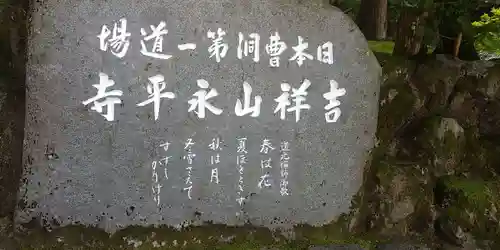 日本曹洞第一道場
吉祥山永平寺
道元禅師御歌
春は花
夏ほととぎす
秋は月
冬雪さえて
すずし
かりけり